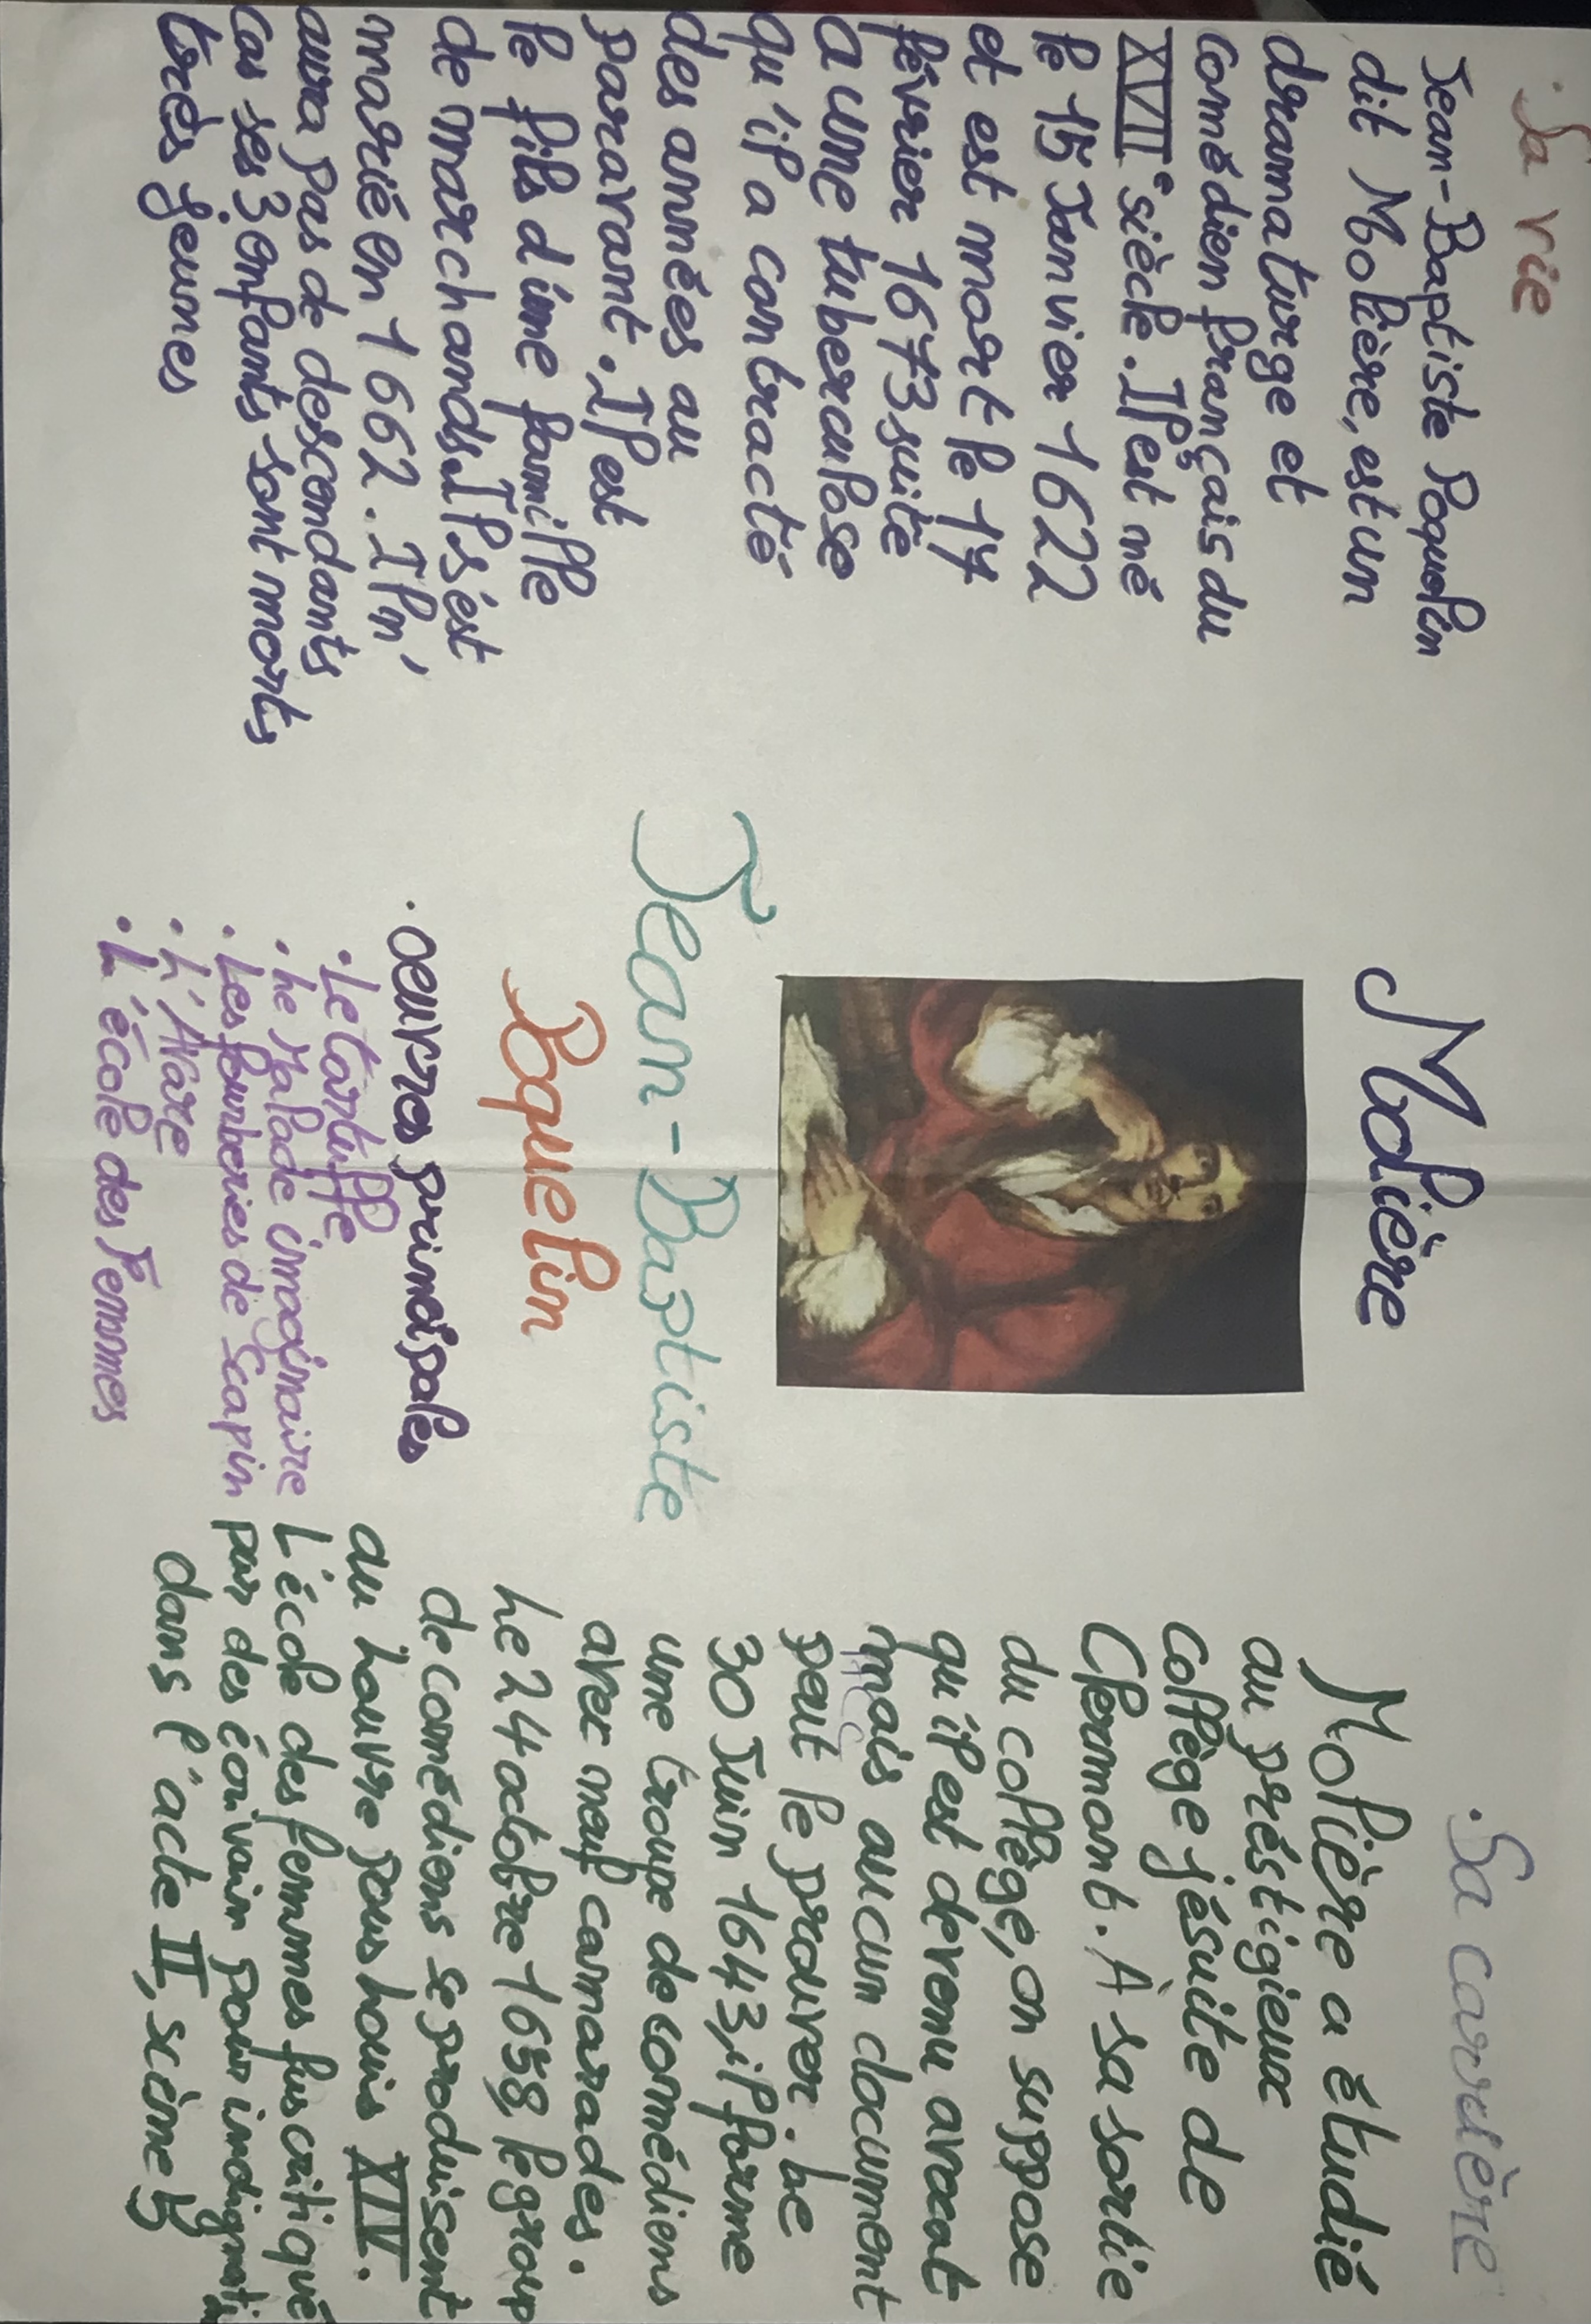 . Sa vie
Jean-Baptiste Poquelin
dit Molière, est un
dramaturge et
comédien français du
XVII e siècle. Il est né
le 15 Janvier 1622
et est mort le 17
février 1673 suite
a une tuberculose
qu'il a contracté
des années au
paravant. Il est
le fils d'une famille
de marchands. Il s'est
marié en 1662. Il n'
aura pas de descendants
cas ses 3 enfants sont morts
très jeunes
Molière
Jean-Baptiste
Poquelin
. oeuvres principales
. Le tartuffe
. Le Malade imaginaire
. Les fourberies de Scapin
. L'Avare
. L'école des Femmes
. Sa carrière
Molière a étudié
au préstigieux
collège jésuite de
Clermont. À sa sortie
du collège, on suppose
qu'il est devenu avocat
mais aucun document
peut le prouver. Le
30 Juin 1643, il forme
une troupe de comédiens
avec neuf camarades.
Le 24 octobre 1658, le group
de comédiens se produisent
au Louvre pous Louis XIV.
L'école des femmes fus critiqué
par des écrivain pour indignati
dans l'acte II, scène 5